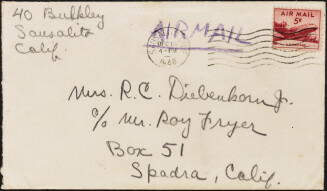 40 Bulkley
Sausalito
Calif.
AIR MAIL
AIR MAIL
5¢
Mrs. R. C. Diebenkorn Jr.
c/o Mr. Roy Fryer
Box 51
Spadra, Calif.